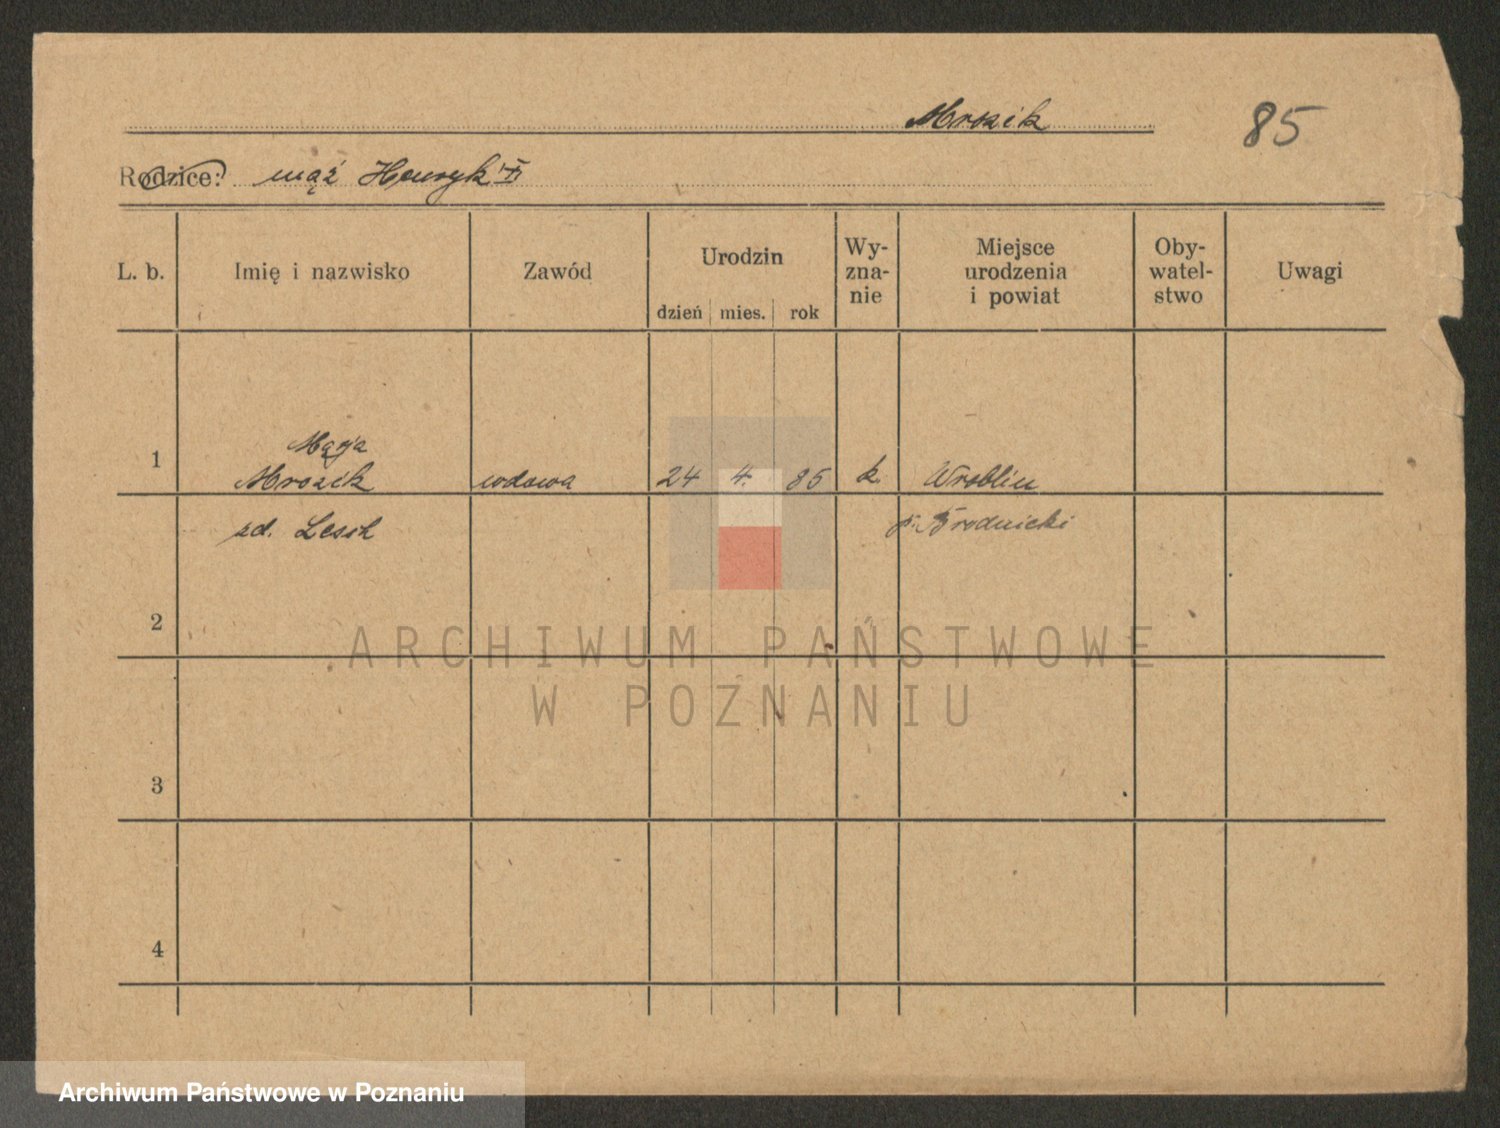 Mrozik
85
Rodzice: mąż Henryk
L. b.
Imię i nazwisko
Zawód
Urodzin
dzień
mies.
rok
Wy-
zna-
nie
Miejsce
urodzenia
i powiat
Oby-
watel-
stwo
Uwagi
Marja
1 Mrozik wdowa 24 4. 85 k.
zd.
p. Brodnicki
2
ARCHIWUM PAŃSTWOWE
W POZNANIU
3
4
Archiwum Państwowe w Poznaniu